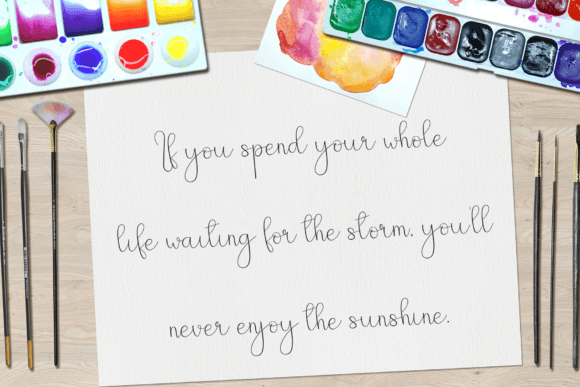 If you spend your whole
life waiting for the storm. you'll
never enjoy the sunshine.